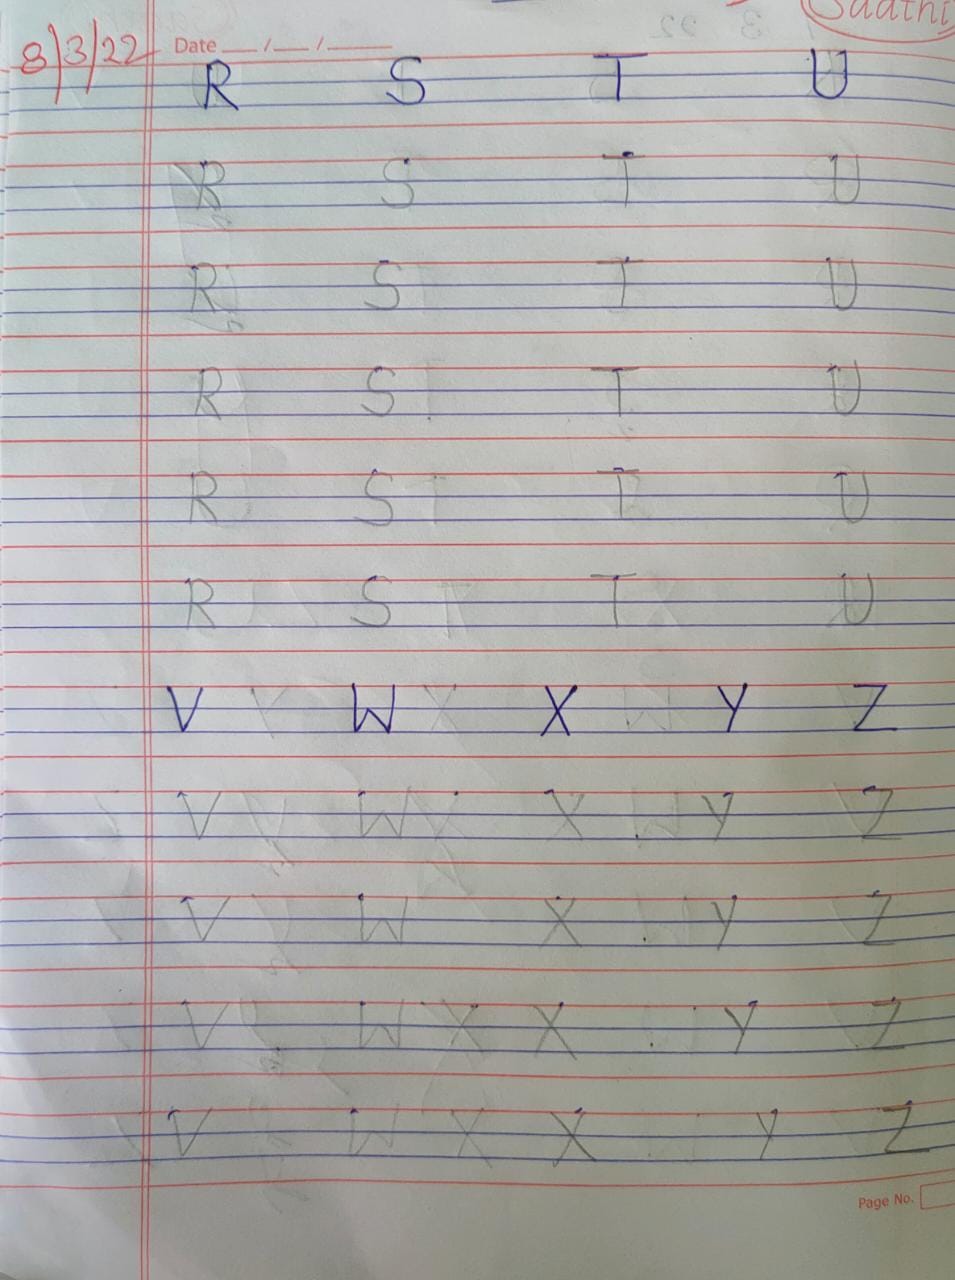 Saathi
8/3/22 Date __/__/____
R S T U
R S T U
R S T U
R S T U
R S T U
R S T U
V W X Y Z
V W X Y Z
V W X Y Z
V W X X Y Z
V W X X Y Z
Page No.